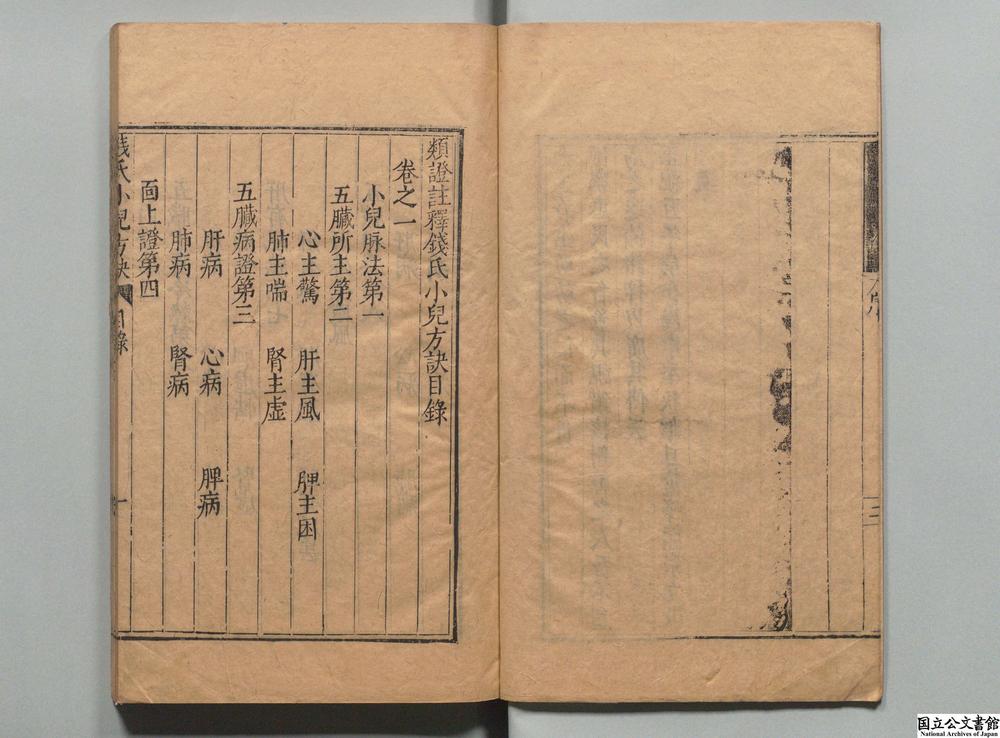 類證註釋錢氏小兒方訣目錄
卷之一
小兒脉法第一
五臟所主第二
心主驚 肝主風 脾主困
肺主喘 腎主虛
五臟病證第三
肝病 心病 脾病
肺病 腎病
面上證第四
錢氏小兒方訣 目錄 一
国立公文書館
National Archives of Japan